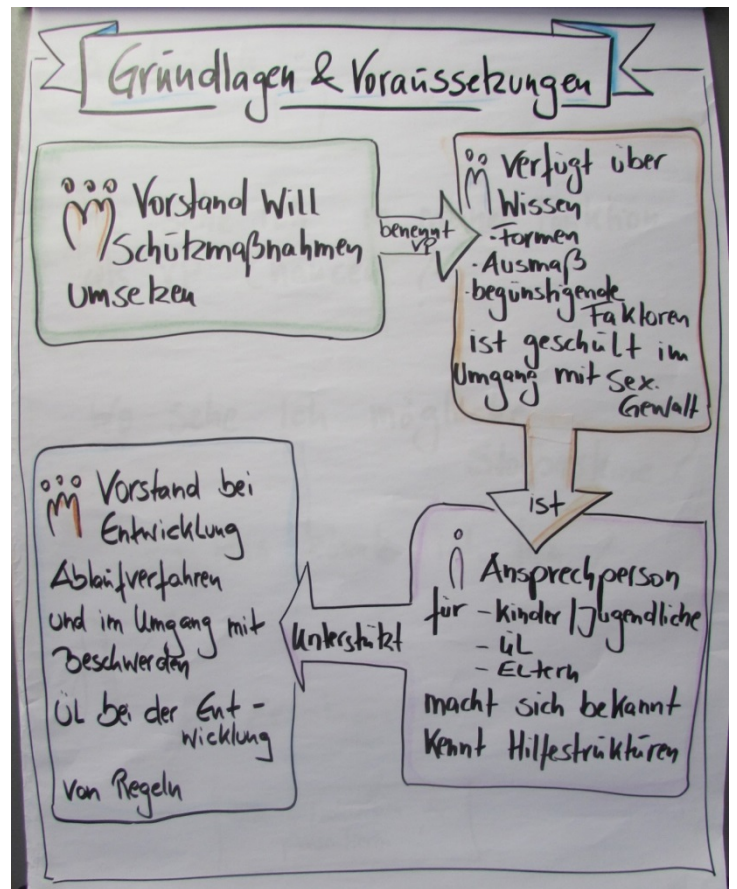 Grundlagen & Voraussetzungen
Vorstand Will
Schutzmaßnahmen
umsetzen
benennt
VP
Verfügt über
Wissen
-Formen
-Ausmaß
-begünstigende
Faktoren
ist geschult im
Umgang mit Sex.
Gewalt
ist
Ansprechperson
für - Kinder/Jugendliche
- ÜL
- Eltern
macht sich bekannt
kennt Hilfestrukturen
unterstützt
Vorstand bei
Entwicklung
Ablaufverfahren
und im Umgang mit
Beschwerden
ÜL bei der Ent-
wicklung
von Regeln